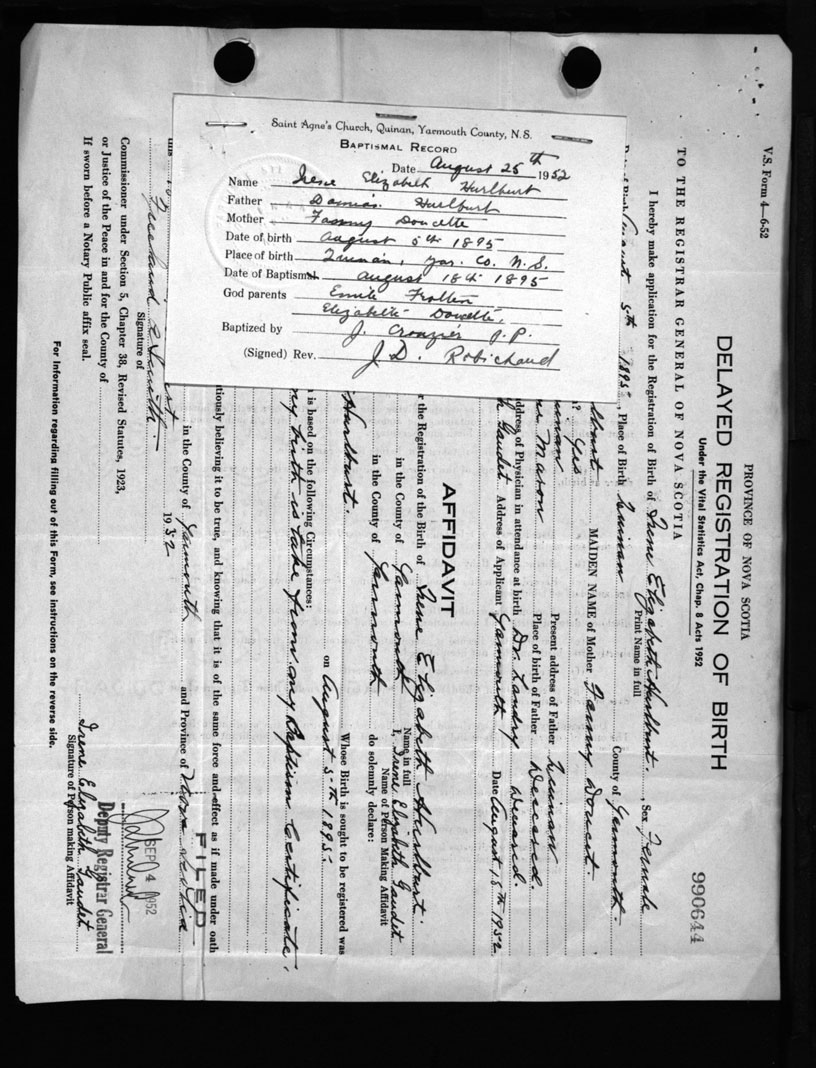 Saint Agne's Church, Quinan, Yarmouth County, N.S.
BAPTISMAL RECORD
Date August 25th 1952
Name Irene Elizabeth Hurlburt
Father Damis. Hurlburt
Mother Fanny Doucette
Date of birth august 5th 1895
Place of birth Quinan, Yar. Co. N.S.
Date of Baptismal august 18th 1895
God parents Emile Frotten
Elizabeth Doucette.
Baptized by J. Crouzier P.P.
(Signed) Rev. J. D. Robichaud
V.S. Form 4—6-52
PROVINCE OF NOVA SCOTIA
DELAYED REGISTRATION OF BIRTH
Under the Vital Statistics Act, Chap. 8 Acts 1952
990644
TO THE REGISTRAR GENERAL OF NOVA SCOTIA
I hereby make application for the Registration of Birth of Irene Elizabeth Hurlburt. , Sex Female
Print Name in full
August 5th 1895 , Place of Birth Quinan County of Yarmouth
MAIDEN NAME of Mother Fanny Doucet.
? Yes
Quinan Present address of Father Quinan
Mason Place of birth of Father Deceased.
ddress of Physician in attendance at birth Dr. Landry Diseased.
h Gaudet. Address of Applicant Yarmouth Date August 18th 1952
AFFIDAVIT
r the Registration of the Birth of Irene Elizabeth Hurlburt
Name in full
in the County of Yarmouth I, Irene Elizabeth Gaudet
Name of Person Making Affidavit
in the County of Yarmouth do solemnly declare:
Hurlburt. Whose Birth is sought to be registered was
on August 5th 1895.
n is based on the following Circumstances:
my birth is take from my Baptism Certificate.
tiously believing it to be true, and knowing that it is of the same force and effect as if made under oath
in the County of Yarmouth and Province of Nova Scotia
1952
FILED
SEP 4 1952
Deputy Registrar General
Signature of
Commissioner under Section 5, Chapter 38, Revised Statutes, 1923,
or Justice of the Peace in and for the County of
If sworn before a Notary Public affix seal.
Irene Elizabeth Gaudet
Signature of Person making Affidavit
For Information regarding filling out of this Form, see instructions on the reverse side.